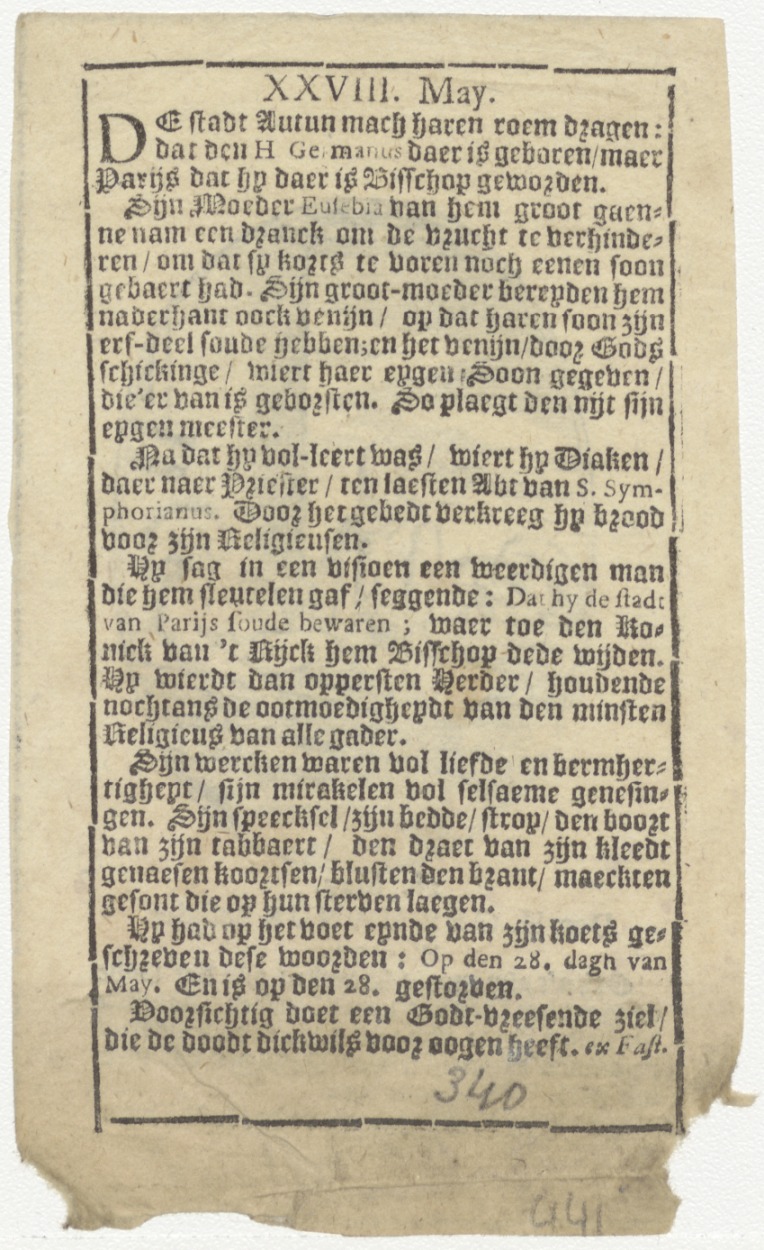 XXVIII. May.
DE stadt Autun mach haren roem dragen:
dat den H Germanus daer is geboren/maer
Parijs dat hy daer is Bisschop geworden.
Sijn Moeder Eusebia van hem groot gaen-
ne nam een dranck om de vrucht te verhinde-
ren / om dat sy korts te voren noch eenen soon
gebaert had. Sijn groot-moeder bereyden hem
naderhant oock venijn / op dat haren soon zijn
erf-deel soude hebben; en het venijn/door Gods
schickinge / wiert haer eygen Soon gegeven /
die'er van is geborsten. So plaegt den nijt sijn
eygen meester.
Na dat hy vol-leert was / wiert hy Diaken /
daer naer Priester / ten laesten Abt van S. Sym-
phorianus. Door het gebedt verkreeg hy brood
voor zijn Religieusen.
Hy sag in een visioen een weerdigen man
die hem sleutelen gaf / seggende: Dat hy de stadt
van Parijs soude bewaren; waer toe den Ko-
nick van 't Rijck hem Bisschop dede wijden.
Hy wierdt dan oppersten Herder / houdende
nochtans de ootmoedigheydt van den minsten
Religieus van alle gader.
Sijn wercken waren vol liefde en bermher-
tigheyt / sijn mirakelen vol selsaeme genesin-
gen. Sijn speecksel / zijn bedde / strop / den boort
van zijn tabbaert / den draet van zijn kleedt
genaesen koortsen / blusten den brant / maeckten
gesont die op hun sterven laegen.
Hy had op het voet eynde van zijn koets ge-
schreven dese woorden: Op den 28. dagh van
May. En is op den 28. gestorven.
Voorsichtig doet een Godt-vreesende ziel /
die de doodt dickwils voor oogen heeft. ex Fast.
340
441